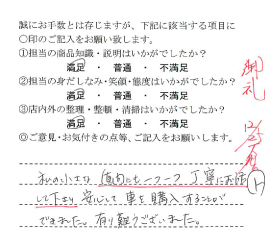 誠にお手数とは存じますが、下記に該当する項目に
〇印のご記入をお願い致します。
①担当の商品知識・説明はいかがでしたか？
満足 ・ 普通 ・ 不満足
②担当の身だしなみ・笑顔・態度はいかがでしたか？
満足 ・ 普通 ・ 不満足
③店内外の整理・整頓・清掃はいかがでしたか？
満足 ・ 普通 ・ 不満足
◎ご意見・お気付きの点等、ご記入をお願いします。
御礼
私の小さな 質問にも一つ一つ 丁寧にお応
して下さり 安心して 車を購入することが
できました。有り難うございました。